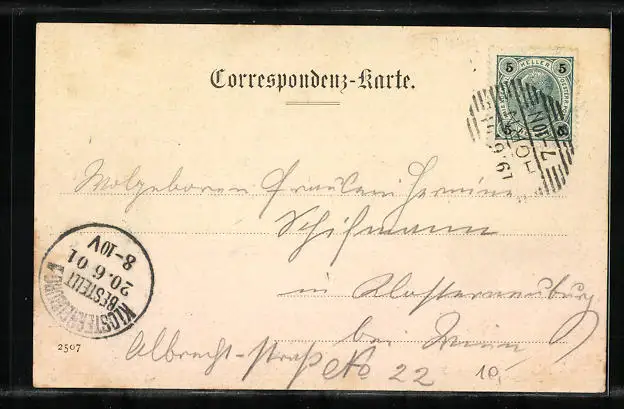 Correspondenz-Karte.
5 HELLER 5
Wolgeboren Fräulein Hermine
Schifmann
in Klosterneuburg
bei Wien
Albrecht-straße No 22
10.
KLOSTERNEUBURG 1
BESTELLT
20.6.01
8-10V
2507